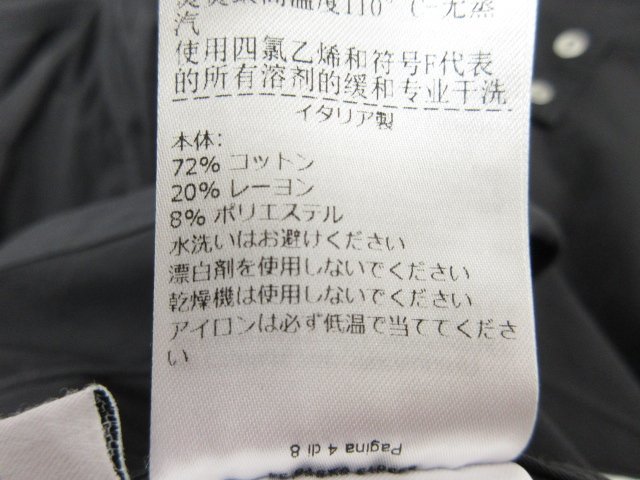 高温度110°C-无蒸
汽
使用四氯乙烯和符号F代表
的所有溶剂的缓和专业干洗
イタリア製
本体:
72% コットン
20% レーヨン
8% ポリエステル
水洗いはお避けください
漂白剤を使用しないでください
乾燥機は使用しないでください
アイロンは必ず低温で当ててくださ
い
Pagina 4 di 8